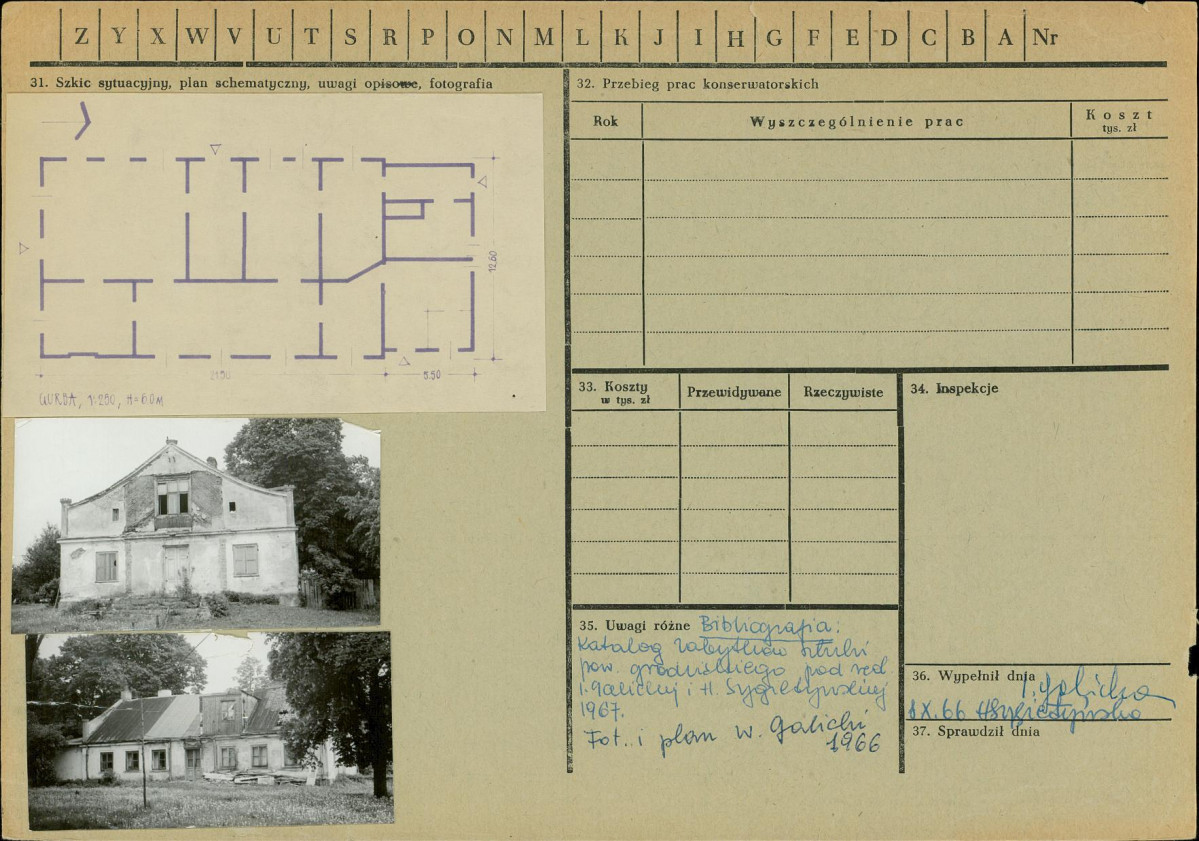 Z Y X W V U T S R P O N M L K J I H G F E D C B A Nr
31. Szkic sytuacyjny, plan schematyczny, uwagi opisowe, fotografia
12.60
21.50
5.50
GURBA, 1:250, H=6.0M
32. Przebieg prac konserwatorskich
Rok
Wyszczególnienie prac
Koszt
tys. zł
33. Koszty
w tys. zł
Przewidywane
Rzeczywiste
34. Inspekcje
35. Uwagi różne Bibliografia:
Katalog zabytków sztuki
pow. grodziskiego pod red.
I. Galickiej i H. Sygietyńskiej
1967.
Fot. i plan W. Galicki
1966
36. Wypełnił dnia I. Galicka
X.66 HSygietyńska
37. Sprawdził dnia